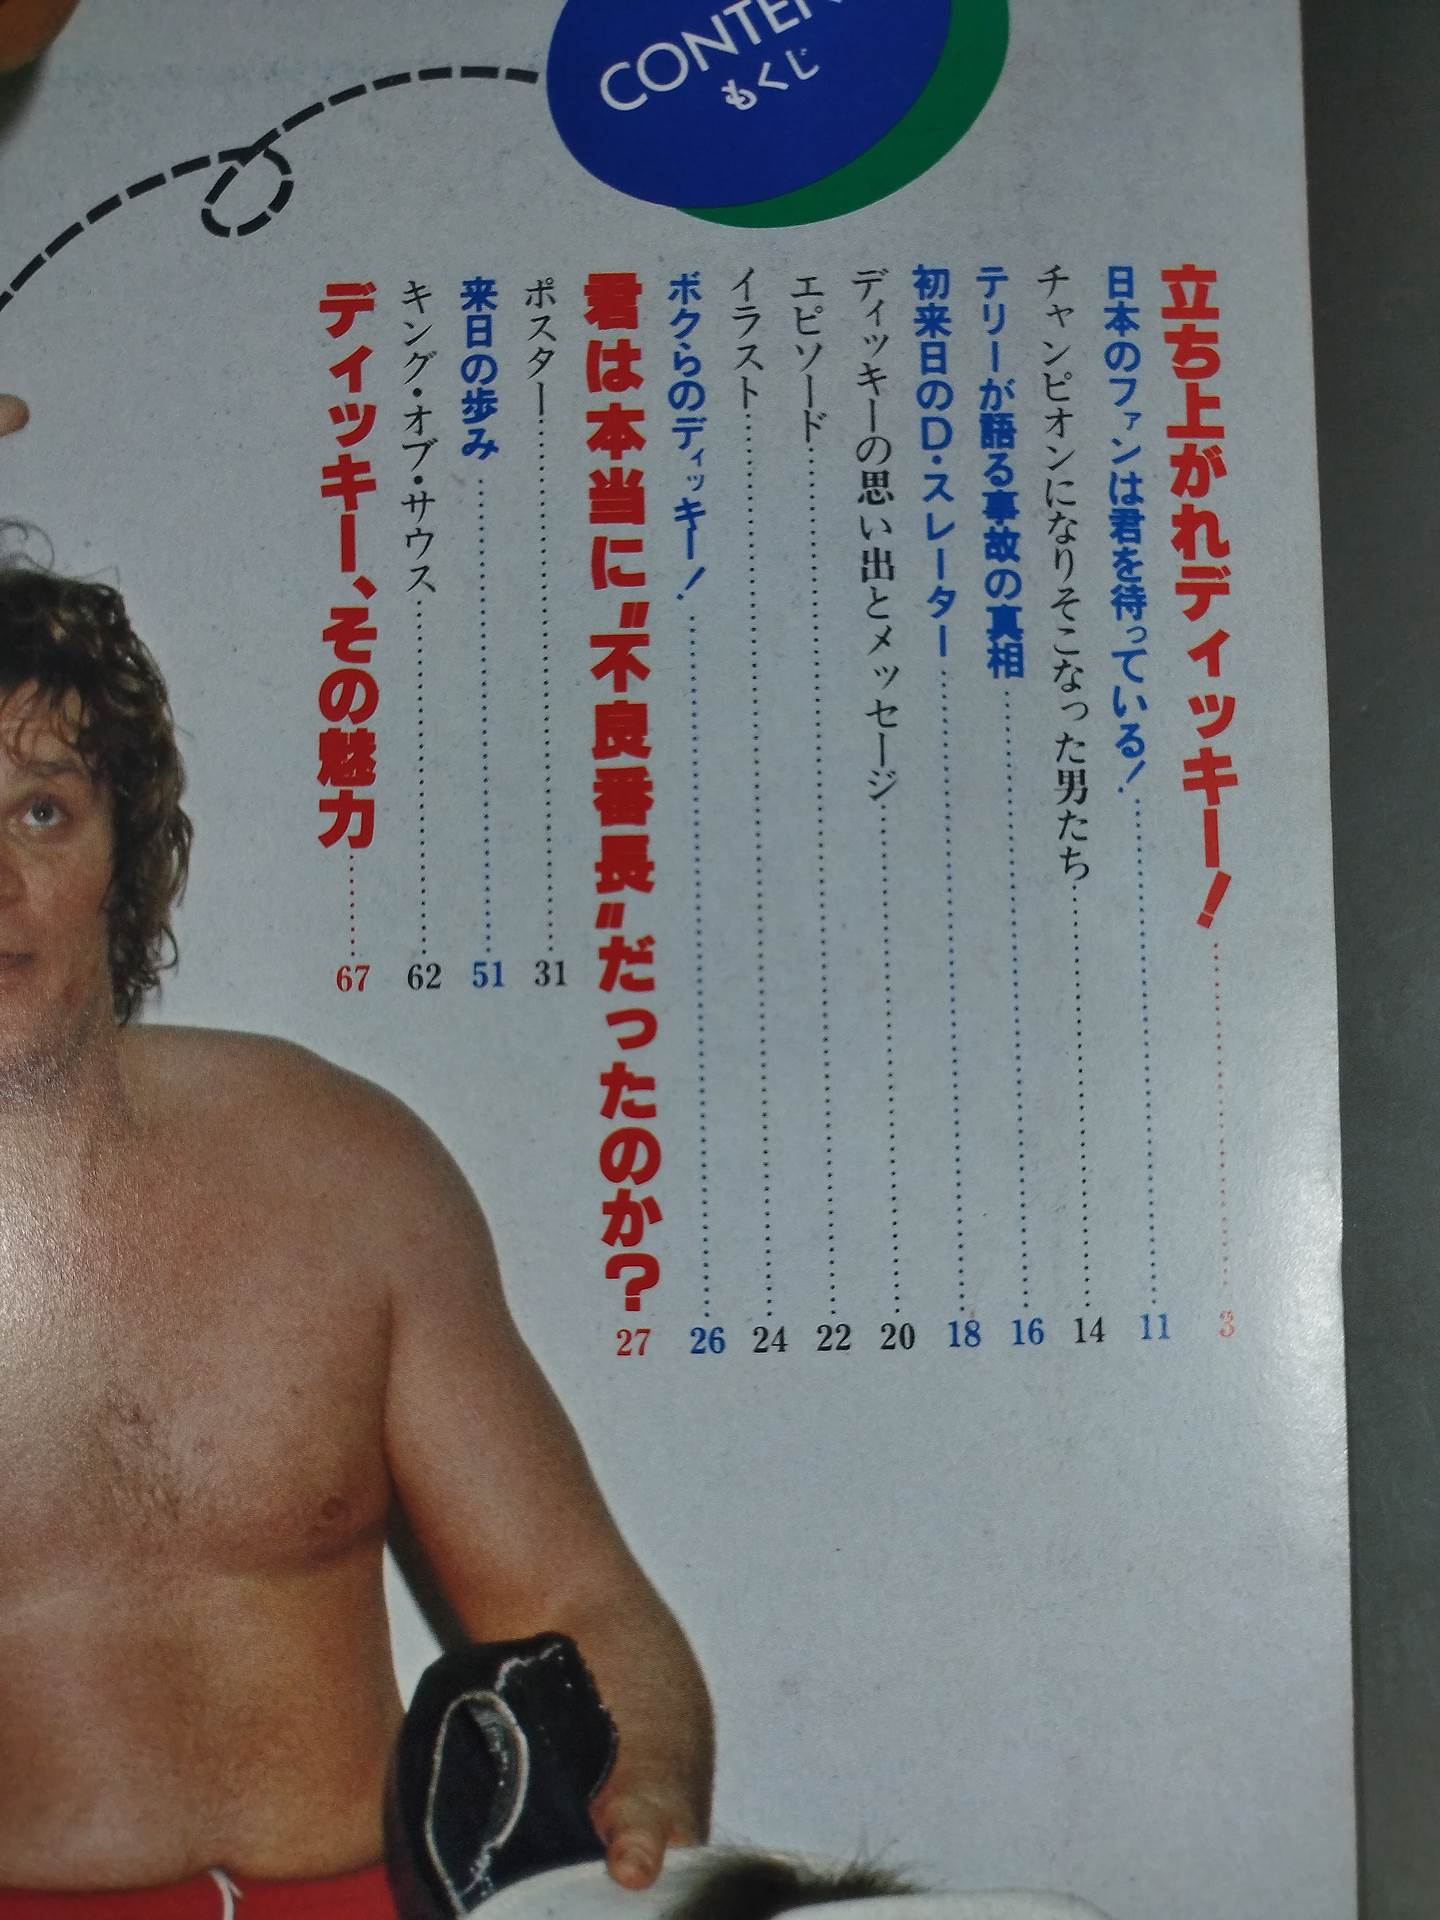 CONTEN
もくじ
立ち上がれディッキー！……3
日本のファンは君を待っている！……11
チャンピオンになりそこなった男たち……14
テリーが語る事故の真相……16
初来日のD・スレーター……18
ディッキーの思い出とメッセージ……20
エピソード……22
イラスト……24
ボクらのディッキー！……26
君は本当に〝不良番長〟だったのか？ 27
ポスター……31
来日の歩み……51
キング・オブ・サウス……62
ディッキー、その魅力……67